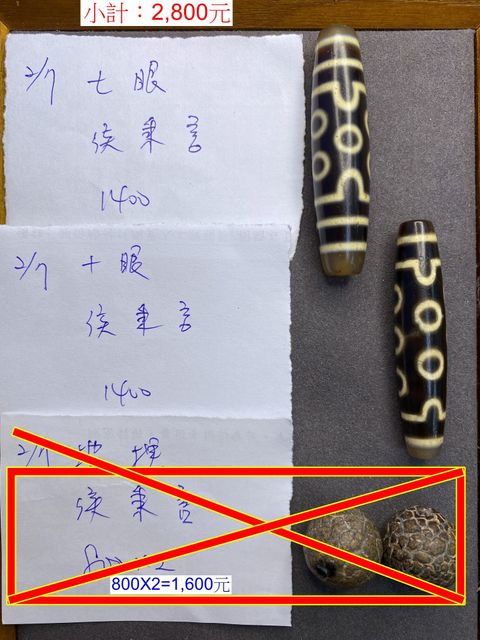 小計：2,800元
2/7 七眼
侯秉言
1400
2/7 十眼
侯秉言
1400
2/7
侯秉言
800X2=1,600元